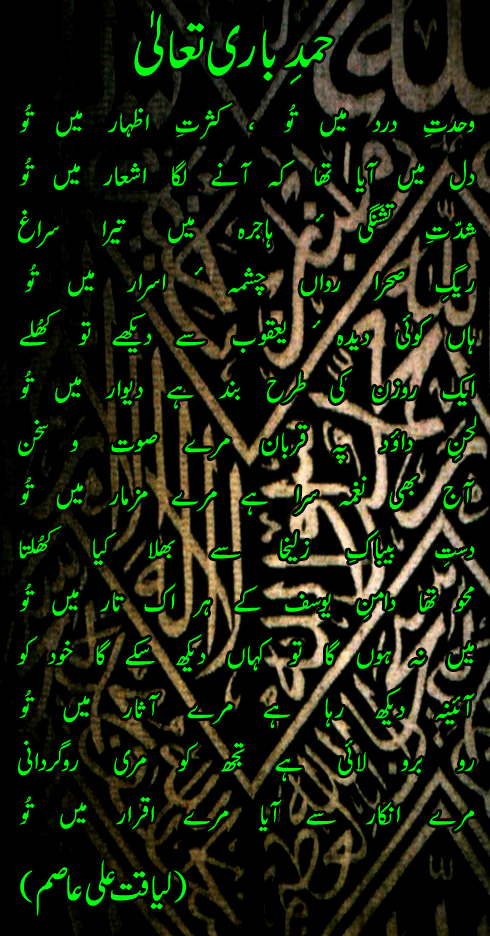 حمدِ باری تعالیٰ
وحدتِ درد میں تُو ، کثرتِ اظہار میں تُو
دل میں آیا تھا کہ آنے لگا اشعار میں تُو
شدّتِ تشنگیٔ ہاجرہ میں تیرا سراغ
ریگِ صحرا رواں چشمۂ اسرار میں تُو
ہاں کوئی دیدۂ یعقوب سے دیکھے تو کھُلے
ایک روزن کی طرح بند ہے دیوار میں تُو
لحنِ داؤد پہ قرباں مرے صوت و سخن
آج بھی نغمہ سرا ہے مرے مزمار میں تُو
دستِ بیباکِ زلیخا سے بھلا کیا کھُلتا
محو تھا دامنِ یوسف کے ہر اک تار میں تُو
میں نہ ہوں گا تو کہاں دیکھ سکے گا خود کو
آئینہ دیکھ رہا ہے مرے آثار میں تُو
رو برو لائی ہے تجھ کو مری روگردانی
مرے انکار سے آیا مرے اقرار میں تُو
(لیاقت علی عاصم)